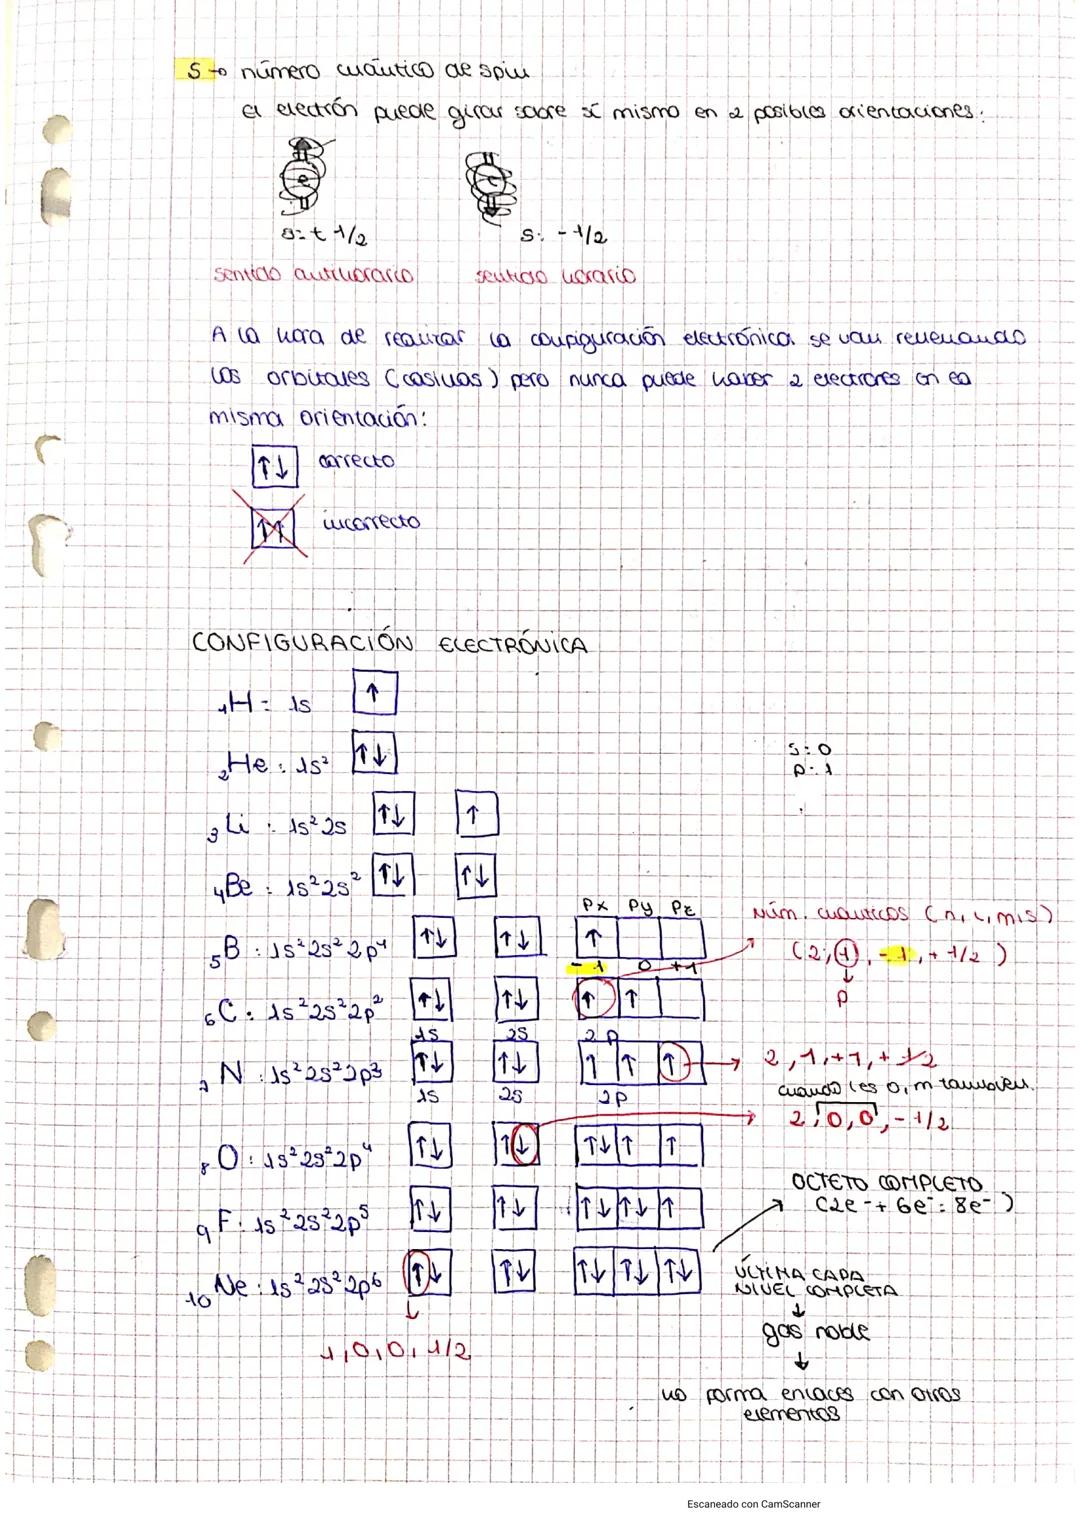 S → número cuántico de spin
el electrón puede girar sobre sí mismo en 2 posibles orientaciones:
e e
s: + 1/2 s: - 1/2
sentido antihorario sentido horario
A la hora de realizar la configuración electrónica se van rellenando
los orbitales (casillas) pero nunca puede haber 2 electrones en la
misma orientación:
↑↓ correcto
↑↑ incorrecto
CONFIGURACIÓN ELECTRÓNICA
₁H = 1s ↑
₂He : 1s² ↑↓
s: 0
p: 1
₃Li : 1s² 2s ↑↓ ↑
₄Be : 1s² 2s² ↑↓ ↑↓
Px Py Pz Núm. cuánticos (n, l, m, s)
₅B : 1s² 2s² 2p¹ ↑↓ ↑↓ ↑ (2, 1, -1, + 1/2)
-1 0 +1 ↓
p
₆C : 1s² 2s² 2p² ↑↓ ↑↓ ↑ ↑
1s 2s 2p
₇N : 1s² 2s² 2p³ ↑↓ ↑↓ ↑ ↑ ↑ → 2, 1, +1, + 1/2
1s 2s 2p cuando l es 0, m también.
2, 0, 0, - 1/2
₈O : 1s² 2s² 2p⁴ ↑↓ ↑↓ ↑↓ ↑ ↑
OCTETO COMPLETO
(2e⁻ + 6e⁻ : 8e⁻)
₉F : 1s² 2s² 2p⁵ ↑↓ ↑↓ ↑↓ ↑↓ ↑
₁₀Ne : 1s² 2s² 2p⁶ ↑↓ ↑↓ ↑↓ ↑↓ ↑↓
ÚLTIMA CAPA
NIVEL COMPLETA
↓
gas noble
↓
1, 0, 0, 1/2
no forma enlaces con otros
elementos
Escaneado con CamScanner